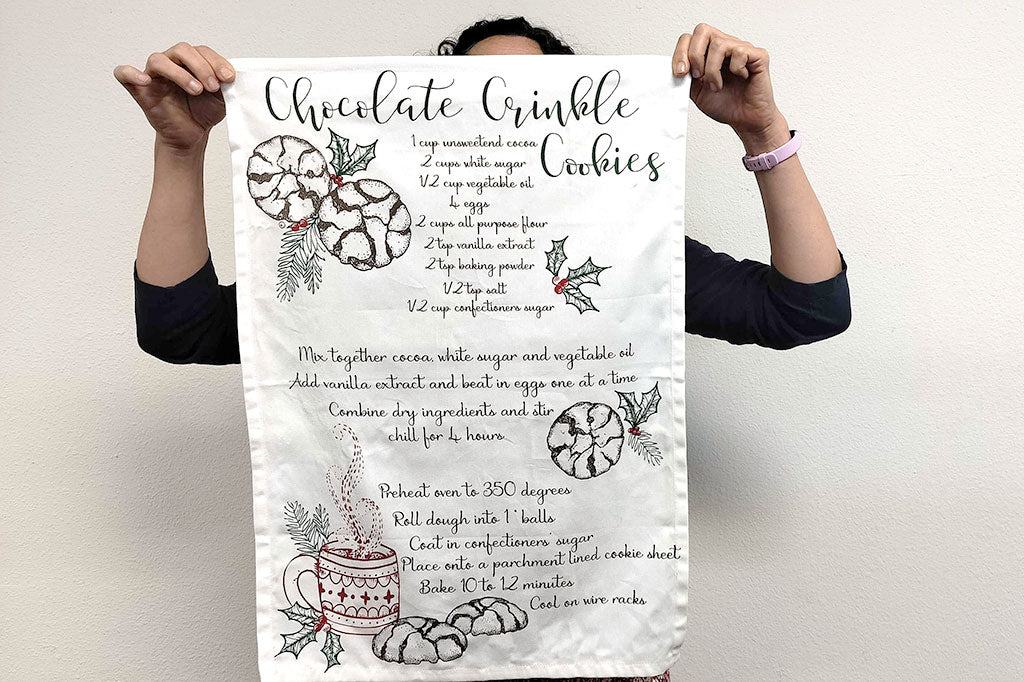 Chocolate Crinkle
Cookies
1 cup unsweetend cocoa
2 cups white sugar
1/2 cup vegetable oil
4 eggs
2 cups all purpose flour
2 tsp vanilla extract
2 tsp baking powder
1/2 tsp salt
1/2 cup confectioners sugar
Mix together cocoa, white sugar and vegetable oil
Add vanilla extract and beat in eggs one at a time
Combine dry ingredients and stir
chill for 4 hours.
Preheat oven to 350 degrees
Roll dough into 1" balls
Coat in confectioners' sugar
Place onto a parchment lined cookie sheet
Bake 10 to 12 minutes
Cool on wire racks